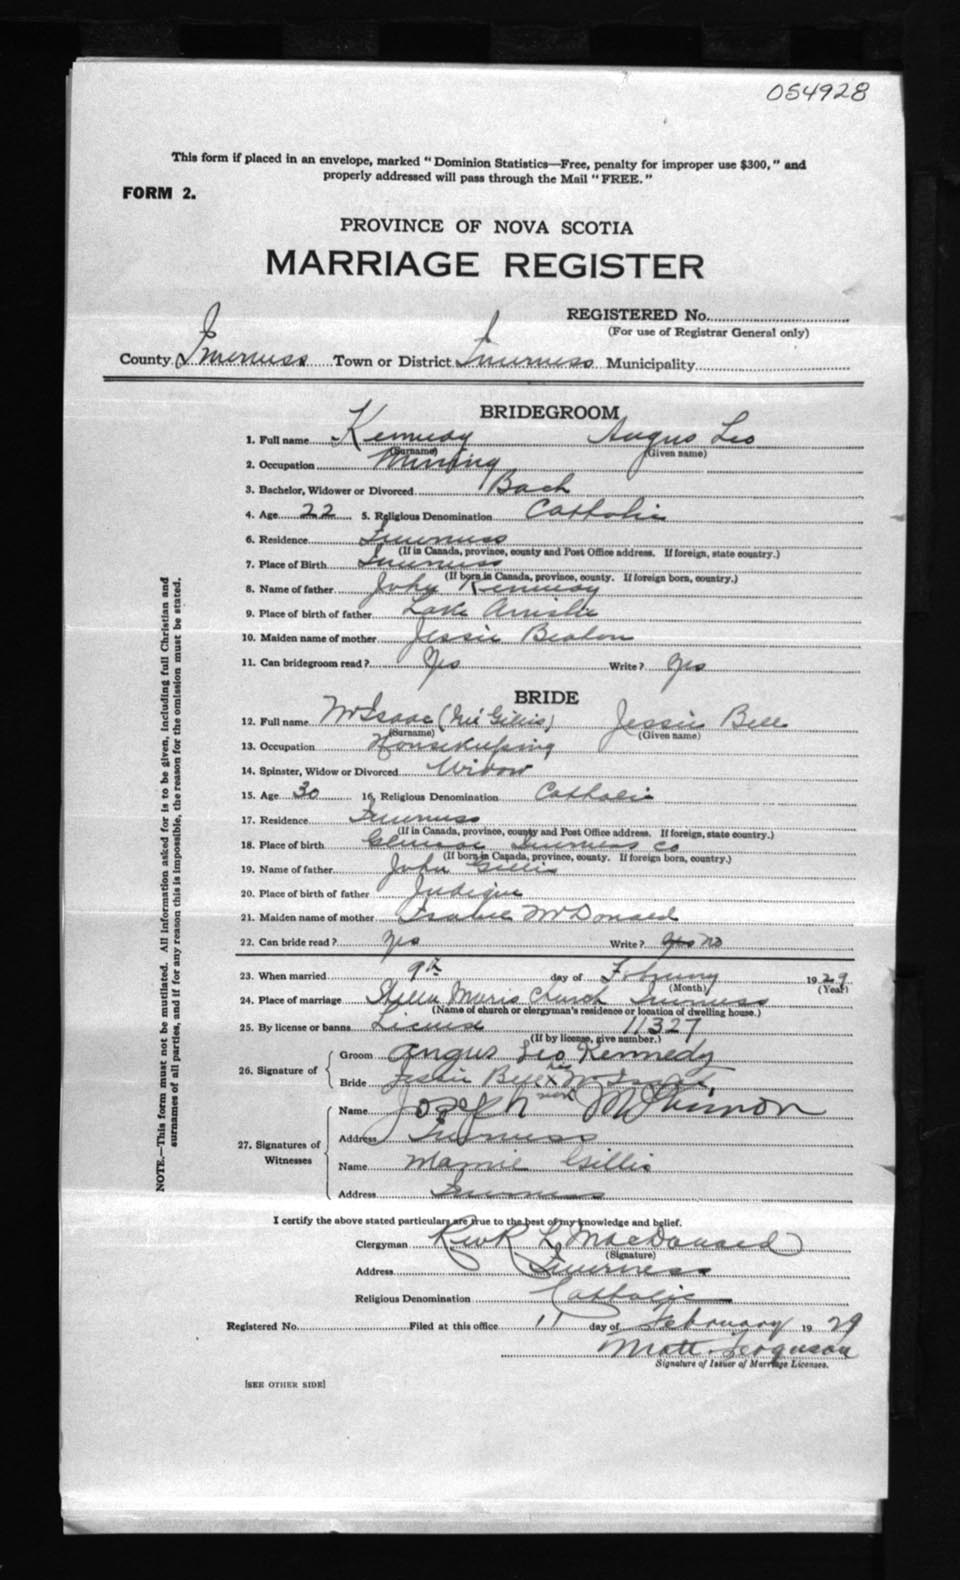 054928
This form if placed in an envelope, marked "Dominion Statistics—Free, penalty for improper use $300," and
properly addressed will pass through the Mail "FREE."
FORM 2.
PROVINCE OF NOVA SCOTIA
MARRIAGE REGISTER
REGISTERED No.
(For use of Registrar General only)
County Inverness Town or District Inverness Municipality
BRIDEGROOM
1. Full name Kennedy Angus Leo
(Surname) (Given name)
2. Occupation Mining
3. Bachelor, Widower or Divorced Bach
4. Age 22 5. Religious Denomination Catholic
6. Residence Inverness
(If in Canada, province, county and Post Office address. If foreign, state country.)
7. Place of Birth Inverness
(If born in Canada, province, county. If foreign born, country.)
8. Name of father John Kennedy
9. Place of birth of father Lake Ainslie
10. Maiden name of mother Jessie Beaton
11. Can bridegroom read? Yes Write? Yes
BRIDE
12. Full name McIsaac (née Gillis) Jessie Bell
(Surname) (Given name)
13. Occupation Housekeeping
14. Spinster, Widow or Divorced Widow
15. Age 30 16. Religious Denomination Catholic
17. Residence Inverness
(If in Canada, province, county and Post Office address. If foreign, state country.)
18. Place of birth Glencoe Inverness Co
(If born in Canada, province, county. If foreign born, country.)
19. Name of father John Gillis
20. Place of birth of father Judique
21. Maiden name of mother McDonald
22. Can bride read? Yes Write? Yes No
23. When married 9th day of February 1929
(Month) (Year)
24. Place of marriage Stella Maris Church Inverness
(Name of church or clergyman's residence or location of dwelling house.)
25. By license or banns License 11327
(If by license, give number.)
26. Signature of
Groom Angus Leo Kennedy
Bride Jessie Bell her x mark McIsaac
27. Signatures of Witnesses
Name Joseph McKinnon
Address Inverness
Name Mamie Gillis
Address Inverness
I certify the above stated particulars are true to the best of my knowledge and belief.
Clergyman Rev R L MacDonald
(Signature)
Address Inverness
Religious Denomination Catholic
Registered No. Filed at this office 11 day of February 1929
Matt. Ferguson
Signature of Issuer of Marriage Licenses.
[SEE OTHER SIDE]
NOTE.—This form must not be mutilated. All information asked for is to be given, including full Christian and
surnames of all parties, and if for any reason this is impossible, the reason for the omission must be stated.